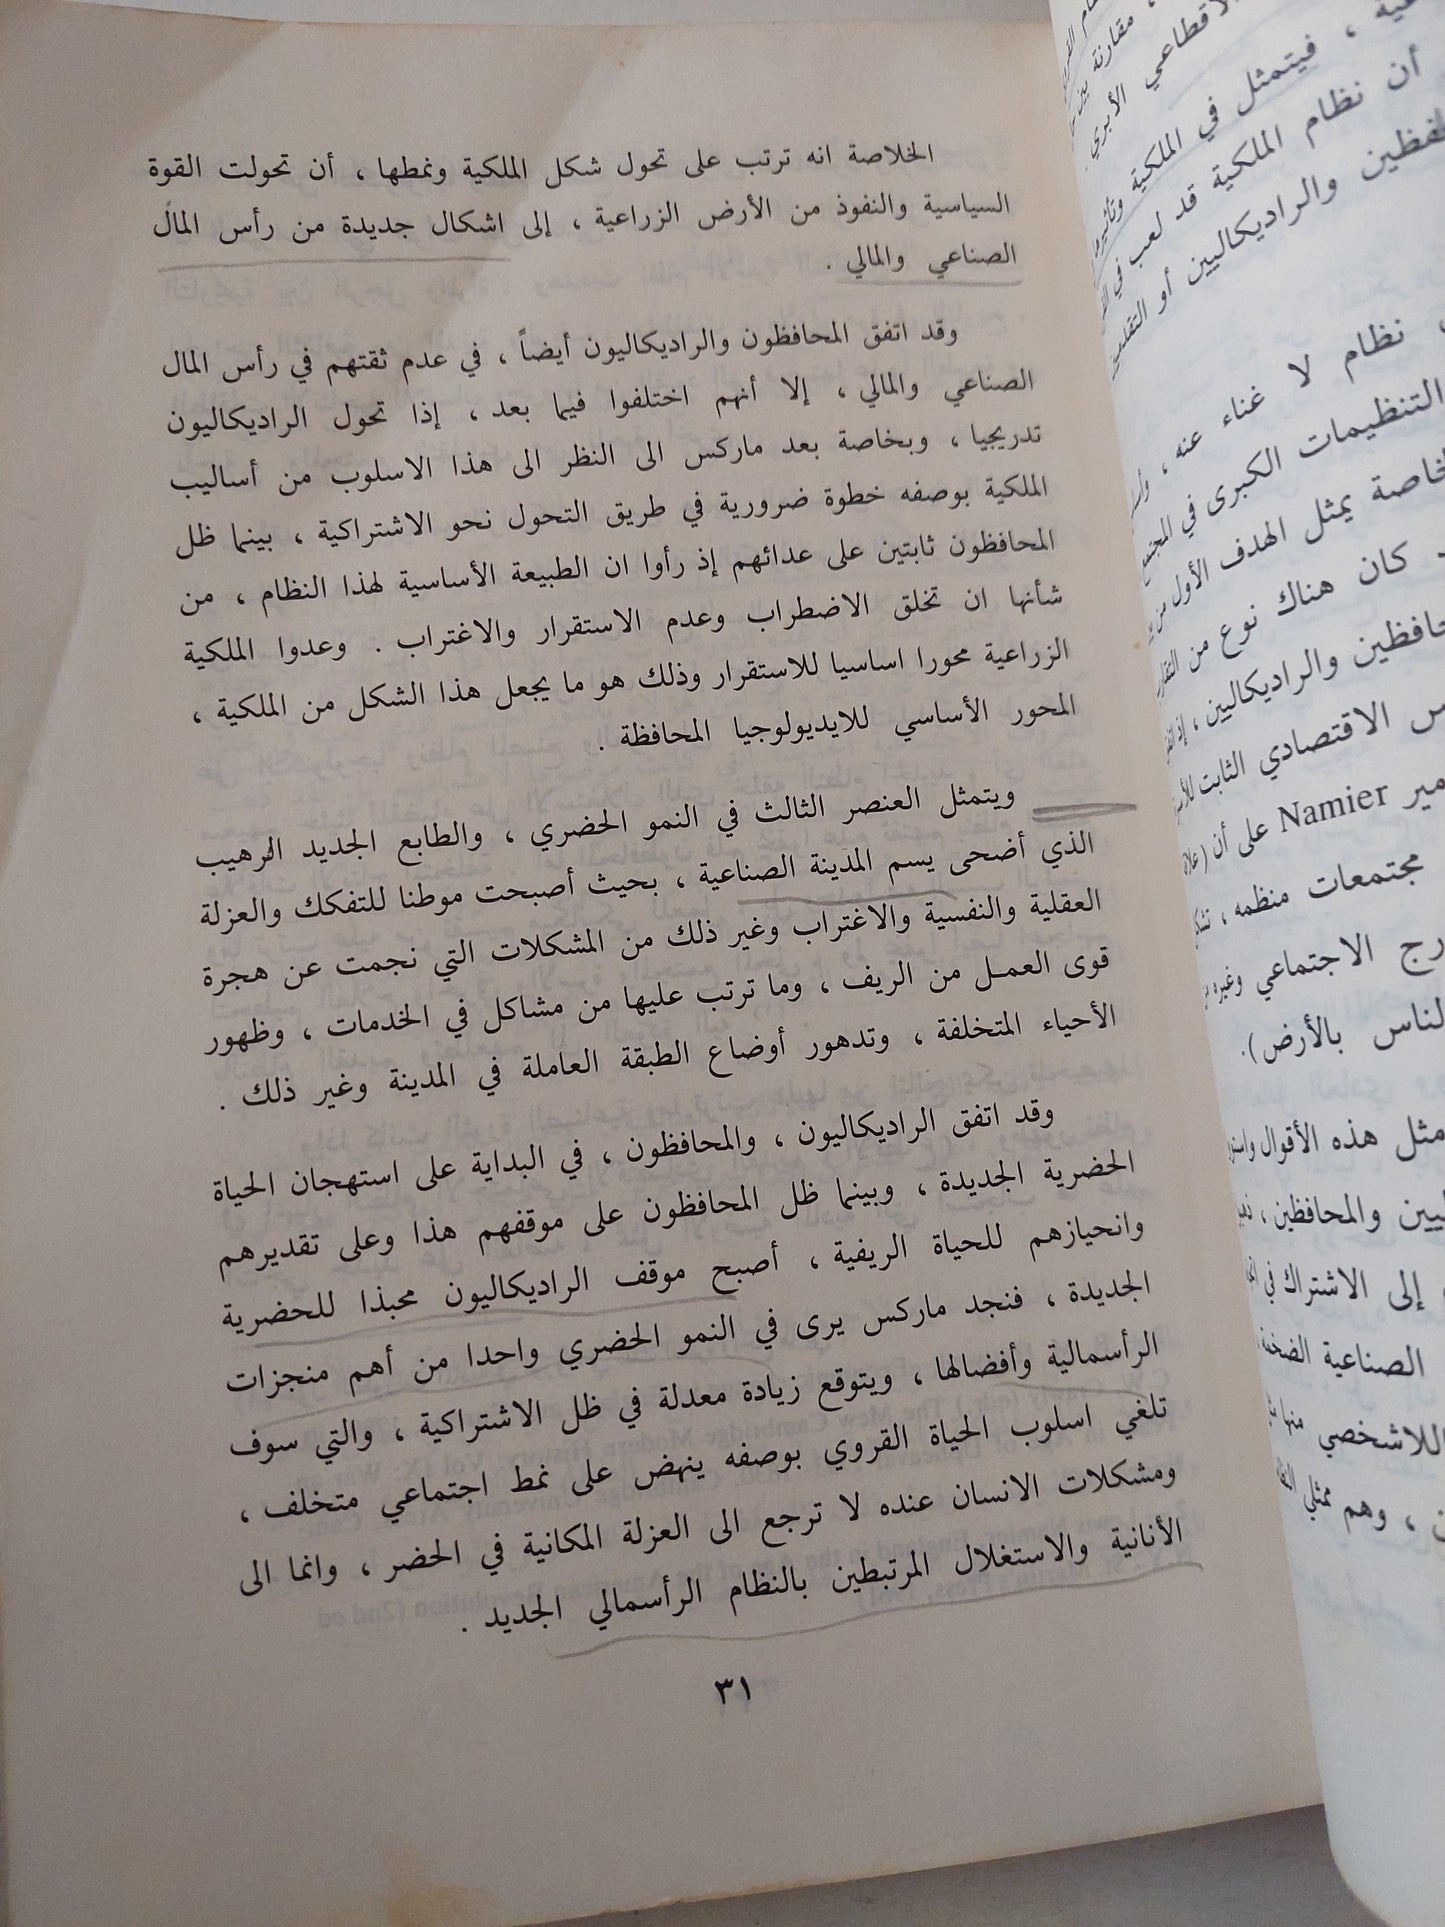 الخلاصة انه ترتب على تحول شكل الملكية ونمطها ، أن تحولت القوة
السياسية والنفوذ من الأرض الزراعية ، إلى اشكال جديدة من رأس المال
الصناعي والمالي .
وقد اتفق المحافظون والراديكاليون أيضاً ، في عدم ثقتهم في رأس المال
الصناعي والمالي ، إلا أنهم اختلفوا فيما بعد ، إذا تحول الراديكاليون
تدريجيا ، وبخاصة بعد ماركس الى النظر الى هذا الاسلوب من أساليب
الملكية بوصفه خطوة ضرورية في طريق التحول نحو الاشتراكية ، بينما ظل
المحافظون ثابتين على عدائهم إذ رأوا ان الطبيعة الأساسية لهذا النظام ، من
شأنها ان تخلق الاضطراب وعدم الاستقرار والاغتراب . وعدوا الملكية
الزراعية محورا اساسيا للاستقرار وذلك هو ما يجعل هذا الشكل من الملكية ،
المحور الأساسي للايديولوجيا المحافظة .
ويتمثل العنصر الثالث في النمو الحضري ، والطابع الجديد الرهيب
الذي أضحى يسم المدينة الصناعية ، بحيث أصبحت موطنا للتفكك والعزلة
العقلية والنفسية والاغتراب وغير ذلك من المشكلات التي نجمت عن هجرة
قوى العمل من الريف ، وما ترتب عليها من مشاكل في الخدمات ، وظهور
الأحياء المتخلفة ، وتدهور أوضاع الطبقة العاملة في المدينة وغير ذلك .
وقد اتفق الراديكاليون ، والمحافظون ، في البداية على استهجان الحياة
الحضرية الجديدة ، وبينما ظل المحافظون على موقفهم هذا وعلى تقديرهم
وانحيازهم للحياة الريفية ، أصبح موقف الراديكاليون محبذا للحضرية
الجديدة ، فنجد ماركس يرى في النمو الحضري واحدا من أهم منجزات
الرأسمالية وأفضالها ، ويتوقع زيادة معدلة في ظل الاشتراكية ، والتي سوف
تلغي اسلوب الحياة القروي بوصفه ينهض على نمط اجتماعي متخلف ،
ومشكلات الانسان عنده لا ترجع الى العزلة المكانية في الحضر ، وانما الى
الأنانية والاستغلال المرتبطين بالنظام الرأسمالي الجديد .
٣١
، مقارنة بين
الاقطاعي الأبري
، فيتمثل في الملكية وتأثيرها
أن نظام الملكية قد لعب في
والراديكاليين أو
نظام لا غناء عنه ،
التنظيمات الكبرى في
يمثل الهدف الأول من
كان هناك نوع من
والراديكاليين ، إذ
الاقتصادي الثابت
Namier على أن
مجتمعات منظمه ،
الاجتماعي وغيره
بالأرض).
مثل هذه الأقوال
والمحافظين ،
إلى الاشتراك في
الصناعية الضخمة
اللاشخصي منها
، وهم ممثلي